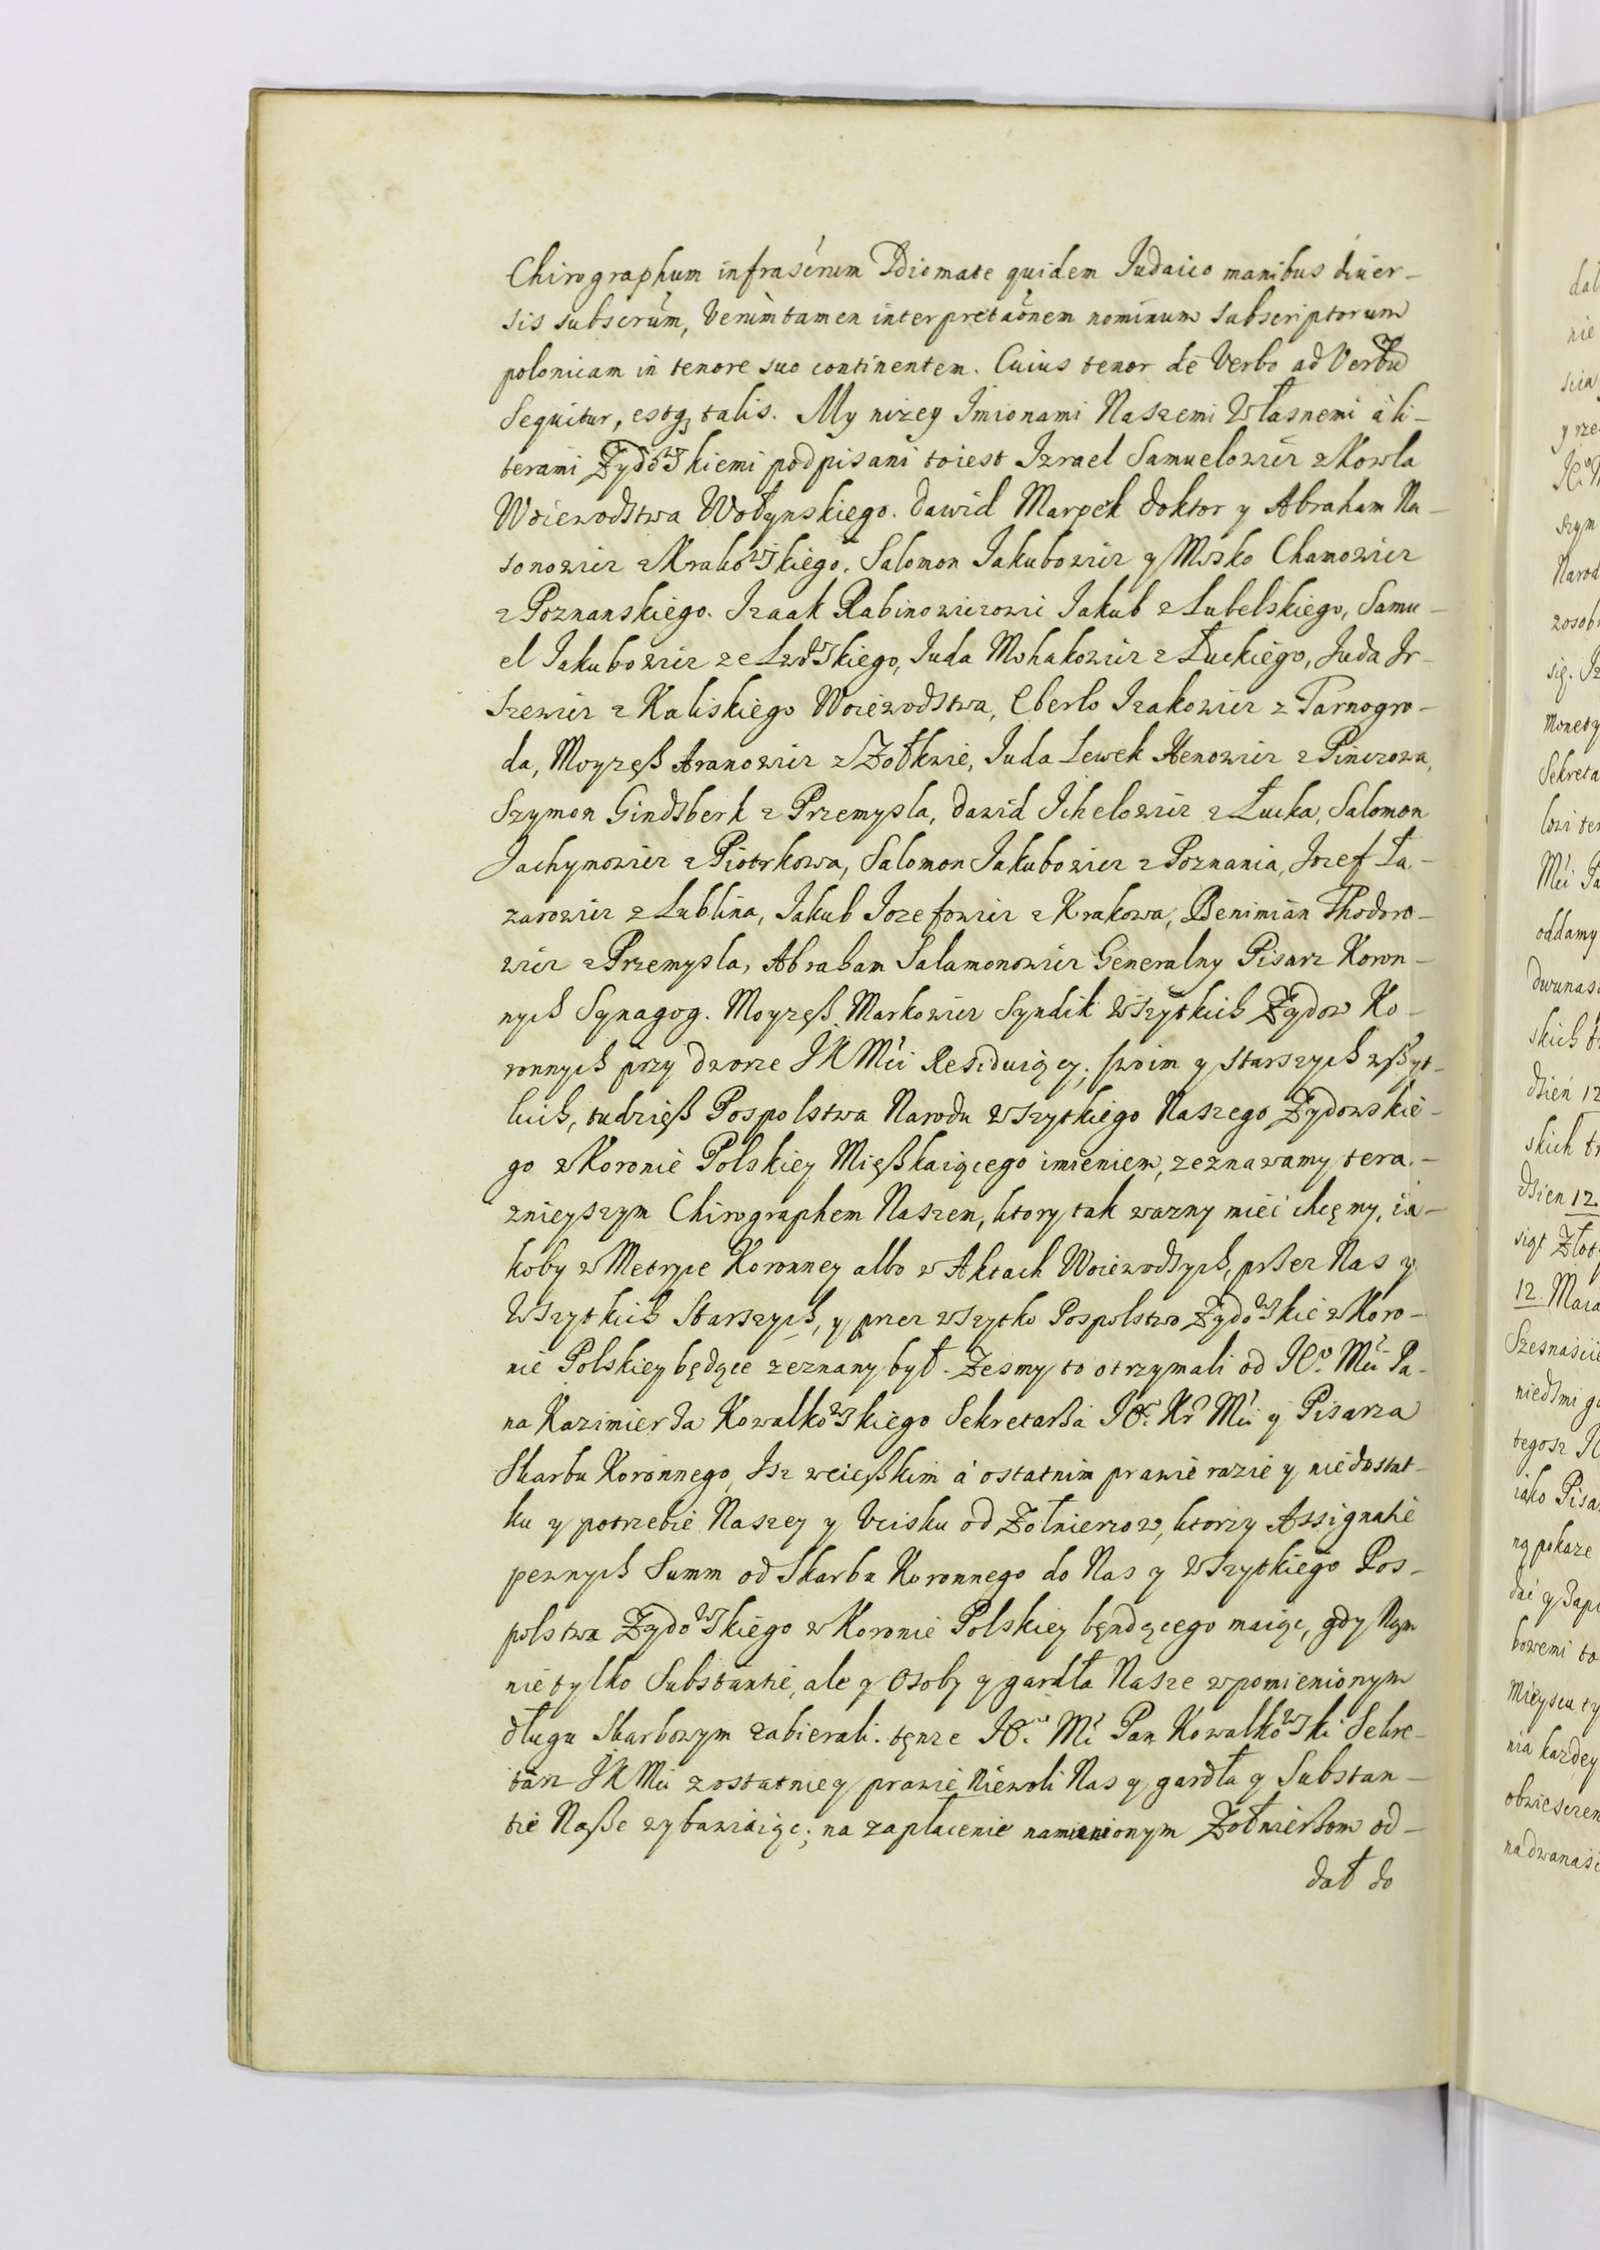 Chirographum infrascrum Idiomate quidem Iudaico manibus diuer-
sis subscrum, Verumtamen interpretaonem nominum subscriptorum
polonicam in tenore suo continentem. Cuius tenor de Verbo ad Verbũ
Sequitur, estq; talis. My nizey Imionami Naszemi Własnemi a li-
terami Zydowskiemi podpisani toiest Izrael Samuelowicz z Kowla
Woiewodstwa Wołynskiego. Dawid Marpek Doktor y Abraham Na-
sonowicz z Krakowskiego. Salomon Iakubowicz y Mosko Chamowicz
z Poznanskiego. Izaak Rabinowiczowi Iakub z Lubelskiego, Samu-
el Iakubowicz ze Lwowskiego, Iuda Mohakowicz z Łuckiego, Iuda Ir-
szewicz z Kaliskiego Woiewodstwa, Eberlo Izakowicz z Tarnogro-
da, Moyzęß Aranowicz z Zołkwie, Iuda Lewek Henowicz z Pinczowa,
Szymon Gindsberk z Przemysla, Dawid Ichelowicz z Łucka, Salomon
Jachymowicz z Piotrkowa, Salomon Iakubowicz z Poznania, Jozef Ła-
zarowicz z Lublina, Iakub Iozefowicz z Krakowa, Benimian Thodoro-
wicz z Przemysla, Abraham Salamonowicz Generalny Pisarz Koron-
nych Synagog. Moyzęß Markowicz Syndik Wszytkich Zydow Ko-
ronnych przy dworze JKMci Residuiący; swoim y starszych wßyt-
kich, tudzięß Pospolstwa Narodu wszytkiego Naszego Zydowskie-
go w Koronie Polskiey Mięßkaiącego imieniem, zeznawamy tera-
znieyszym Chirographem Naszem, ktory tak wazny mieć chcęmy, ia-
koby w Metryce Koronney albo w Aktach Woiewodsych, przez Nas y
Wszytkich Starszych, y przez wszytko Pospolstwo Zydowskie w Koro-
nie Polskiey będące zeznany był. Zesmy to otrzymali od Je⁰ Mci Pa-
na Kazimierza Kowalkowskiego Sekretarza Je⁰ Kr Mci y Pisarza
Skarbu Koronnego, Isz wcięßkim a ostatnim prawie razie y niedostat-
ku y potrzebie Naszey y Vcisku od Zołnierzow, ktorzy Assignatie
pewnych Summ od Skarbu Koronnego do Nas y Wszytkiego Pos-
polstwa Zydowskiego w Koronie Polskiey będącego maiąc, gdy Nam
nie tylko Substantie, ale y Osoby y gardła Nasze wpomienionym
długu Skarbowym zabierali. tęnze Je⁰ Mc Pan Kowalkowski Sekre-
tarz JKMci z ostatniey prawie Niewoli Nas y gardła y Substan-
tie Naße wybawiaiąc; na zapłacenie namienionym Zołnierzom od-
dał do